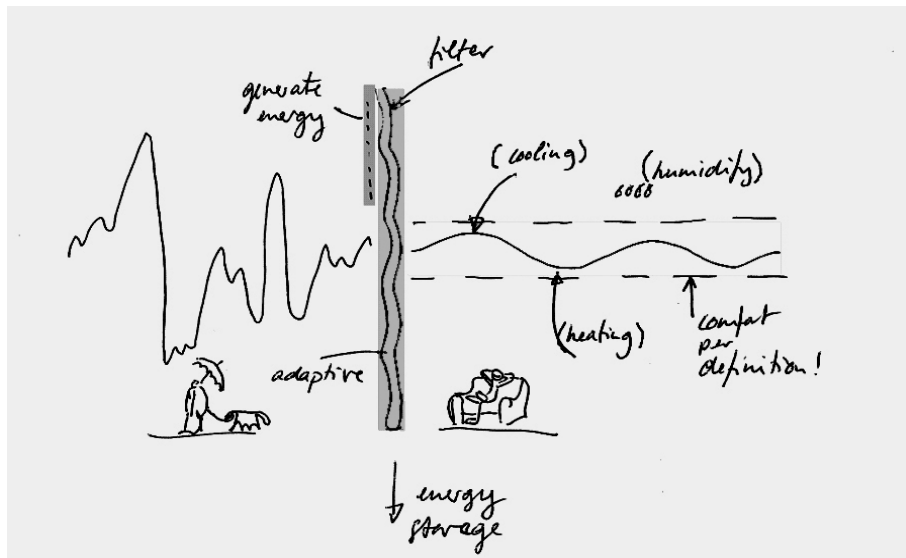 filter
generate
energy
(cooling)
(humidify)
(heating)
comfort
per
definition!
adaptive
energy
storage